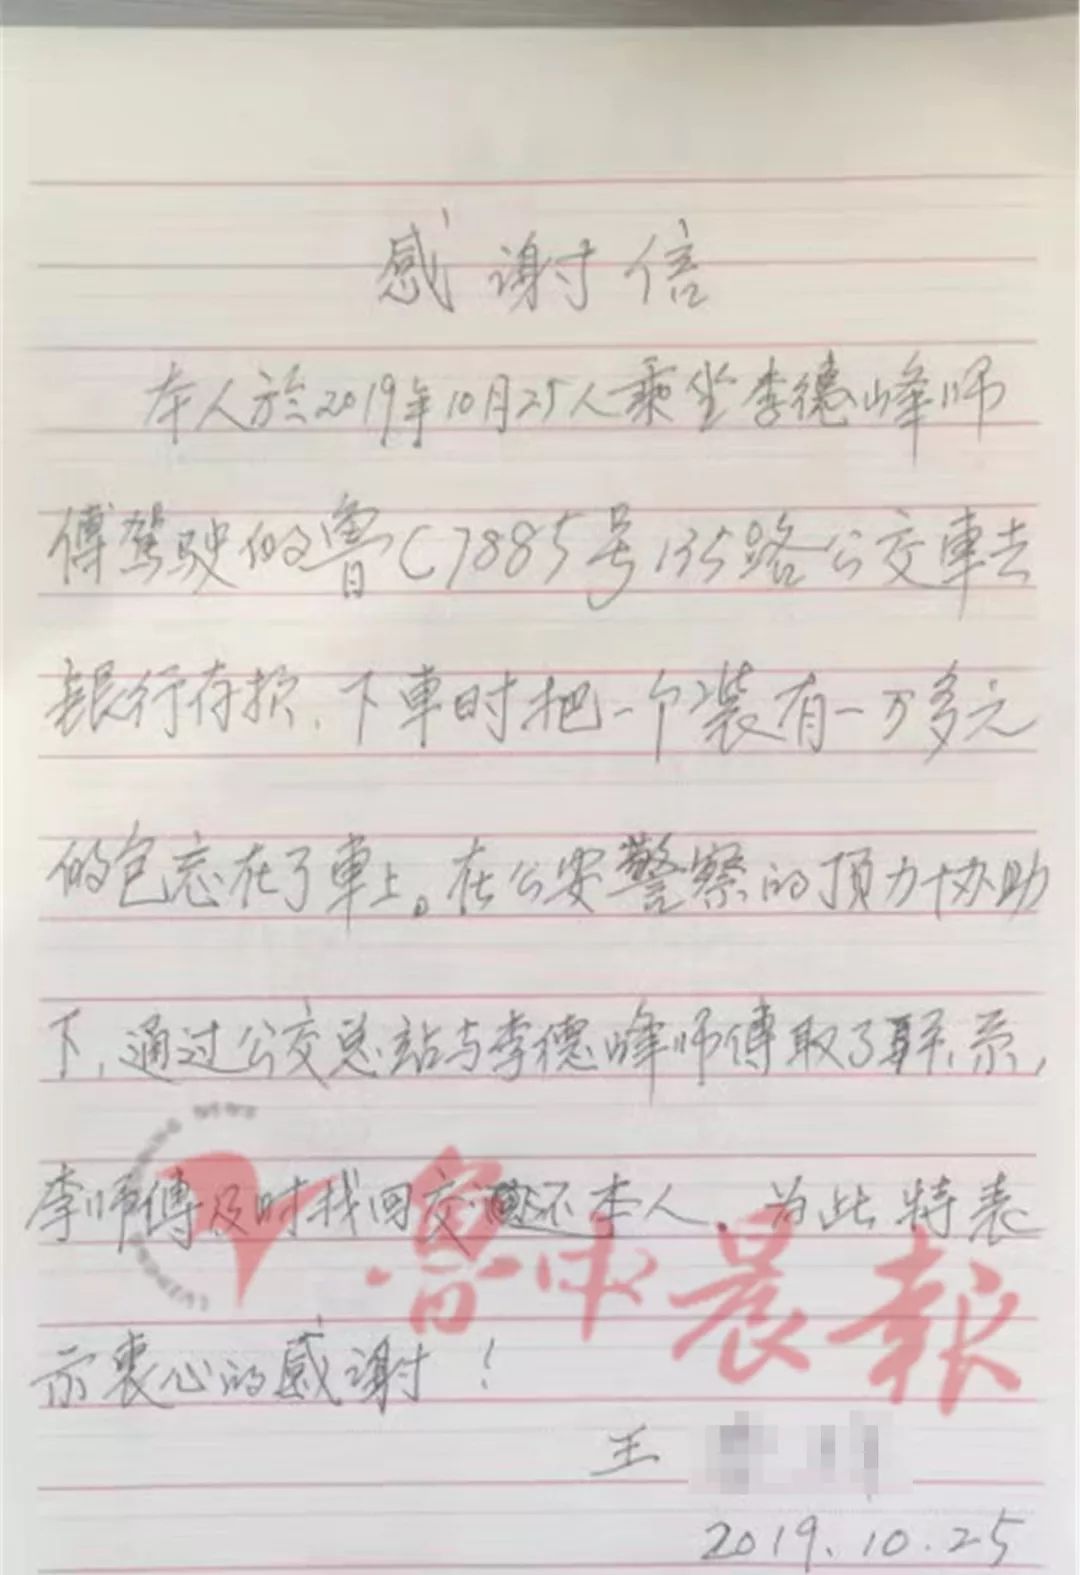 感谢信
本人於2019年10月25人乘坐李德峰师
傅驾驶的鲁C7885号135路公交車去
银行存损、下車时把一个装有一万多元
的包忘在了車上。在公安警察的顶力协助
下,通过公交总站与李德峰师傅取了联系,
李师傅及时找回交还本人、为此特表
示衷心的感谢!
鲁中晨報
王
2019.10.25